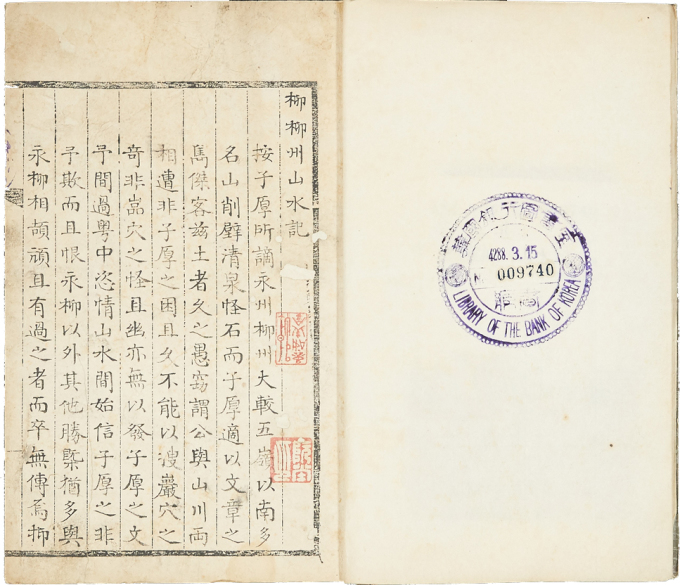 柳柳州山水記
按子厚所謫永州柳州大較五嶺以南多
名山削壁清泉怪石而子厚適以文章之
雋傑客茲土者久之愚竊謂公與山川兩
相遭非子厚之困且久不能以搜巖穴之
奇非嵓穴之怪且幽亦無以發子厚之文
予間過粵中恣情山水間始信子厚之非
予欺而且恨永柳以外其他勝槩猶多與
永柳相頡頏且有過之者而卒無傳焉抑
韓國銀行圖書室
4288. 3. 15
009740
LIBRARY OF THE BANK OF KOREA